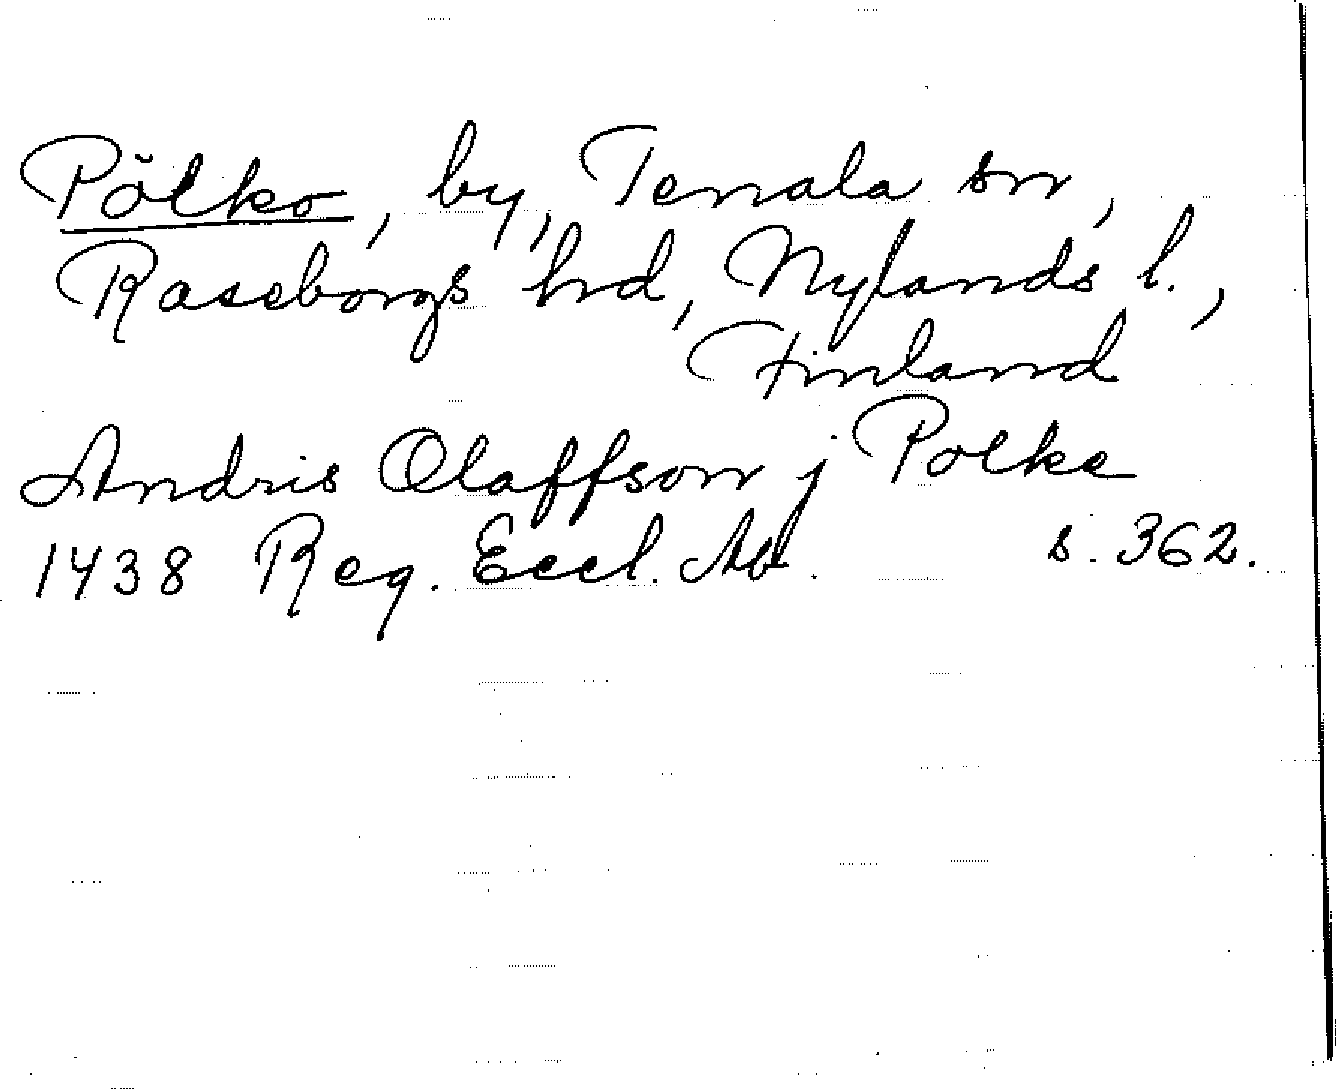 Pölko, by, Tenala sn,
Raseborgs hrd, Nylands l.,
Finland
Andris Olaffson j Polke
1438 Reg. Eccl. Ab. s. 362.